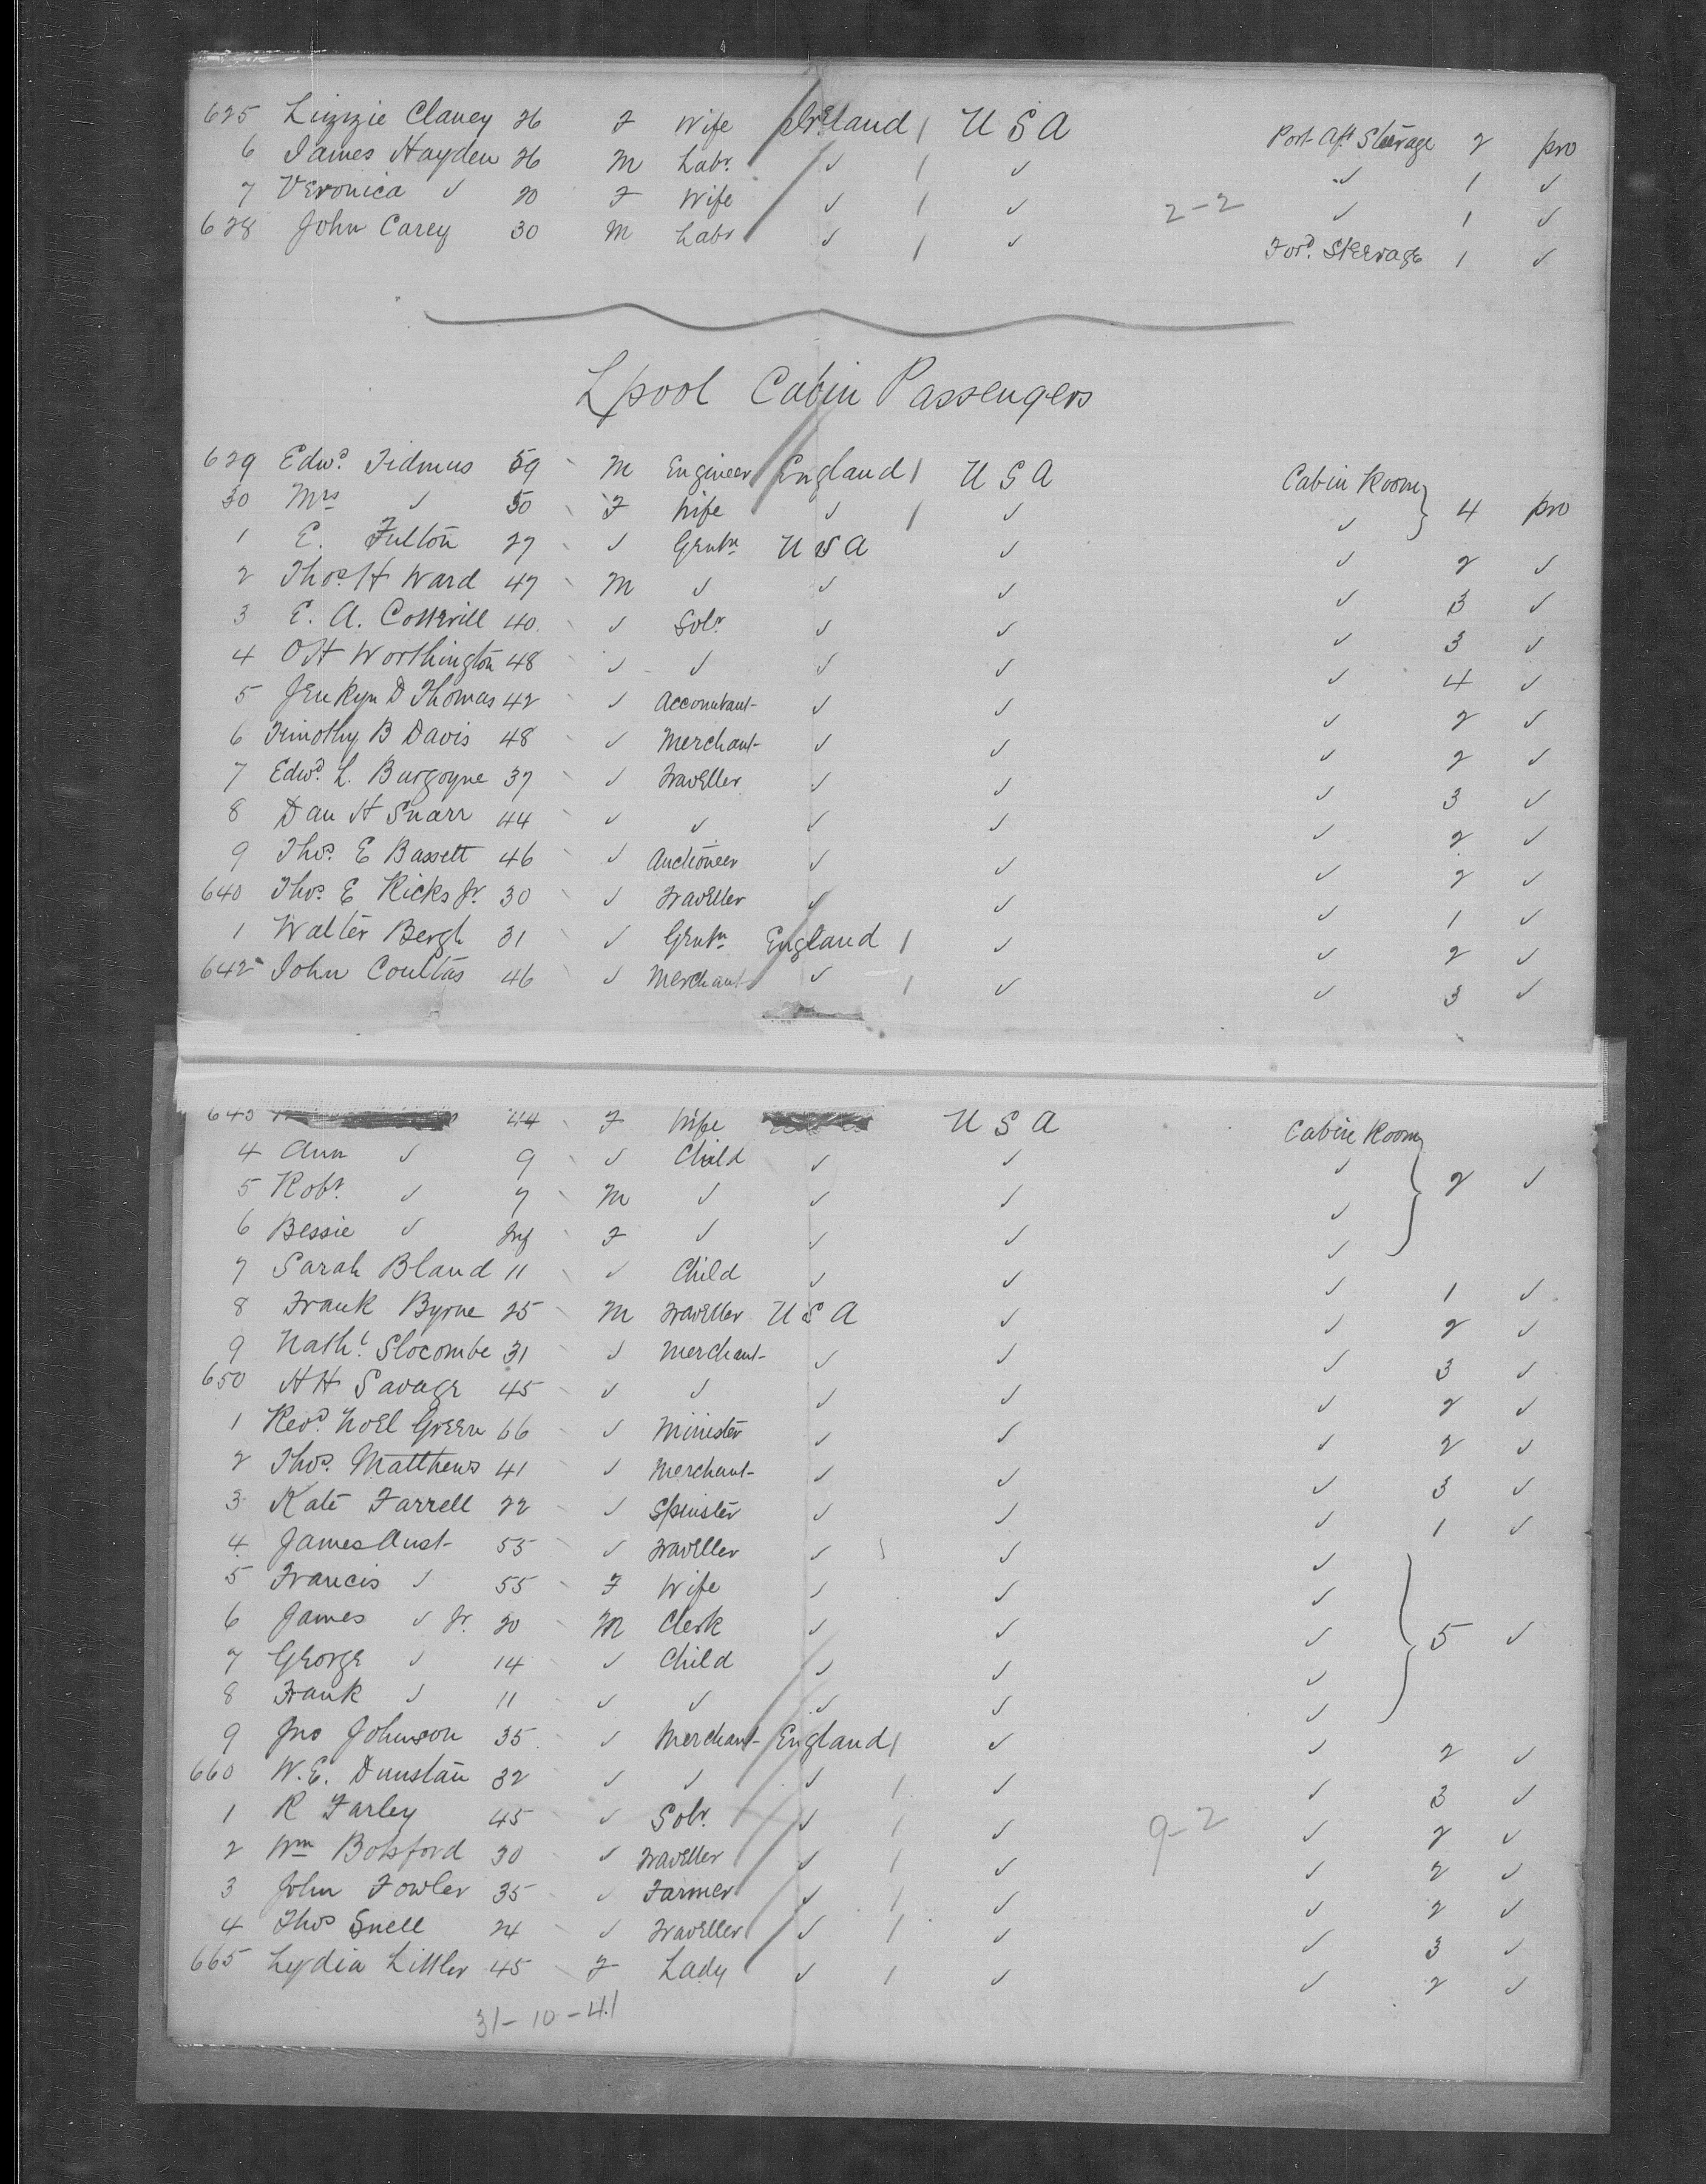 625 Lizzie Clancy 26 F Wife Ireland 1 U S A Port Aft Steerage 2 pro
6 James Hayden 26 M Labr. ✓ 1 ✓ ✓ 1 ✓
7 Veronica ✓ 20 F Wife ✓ 1 ✓ 2-2 ✓ 1 ✓
628 John Carey 30 M Labr ✓ 1 ✓ Ford. Steerage 1 ✓
Lpool Cabin Passengers
629 Edwd. Tidmus 59 M Engineer England 1 U S A Cabin Room
30 Mrs ✓ 50 F Wife ✓ 1 ✓ ✓ } 4 pro
1 E. Fulton 27 ✓ Gentn U S A ✓ ✓ 2 ✓
2 Thos H Ward 47 M ✓ ✓ ✓ ✓ 3 ✓
3 E. A. Cotterill 40 ✓ Solr ✓ ✓ ✓ 3 ✓
4 O H Worthington 48 ✓ ✓ ✓ ✓ ✓ 4 ✓
5 Jenkyn D Thomas 42 ✓ Accountant ✓ ✓ ✓ 2 ✓
6 Timothy B Davis 48 ✓ Merchant ✓ ✓ ✓ 2 ✓
7 Edwd. L. Burgoyne 37 ✓ Traveller ✓ ✓ ✓ 3 ✓
8 Dan H Snarr 44 ✓ ✓ ✓ ✓ ✓ 2 ✓
9 Thos. E Bassett 46 ✓ Auctioneer ✓ ✓ ✓ 2 ✓
640 Thos. E Ricks Jr. 30 ✓ Traveller ✓ ✓ ✓ 1 ✓
1 Walter Bergh 31 ✓ Gentn England 1 ✓ ✓ 2 ✓
642 John Coultas 46 ✓ Merchant ✓ 1 ✓ ✓ 3 ✓
643 44 F Wife U S A Cabin Room
4 Ann ✓ 9 ✓ Child ✓ ✓ ✓ } 2 ✓
5 Robt. ✓ 7 M ✓ ✓ ✓ ✓
6 Bessie ✓ Inf F ✓ ✓ ✓ ✓
7 Sarah Bland 11 ✓ Child ✓ ✓ ✓ 1 ✓
8 Frank Byrne 25 M Traveller U S A ✓ ✓ 2 ✓
9 Nathl. Slocombe 31 ✓ Merchant ✓ ✓ ✓ 3 ✓
650 H H Savage 45 ✓ ✓ ✓ ✓ ✓ 2 ✓
1 Revd. Noel Green 66 ✓ Minister ✓ ✓ ✓ 2 ✓
2 Thos. Matthews 41 ✓ Merchant ✓ ✓ ✓ 3 ✓
3 Kate Farrell 22 ✓ Spinster ✓ ✓ ✓ 1 ✓
4 James Aust 55 ✓ Traveller ✓ ✓ ✓
5 Francis ✓ 55 F Wife ✓ ✓ ✓
6 James ✓ Jr. 20 M Clerk ✓ ✓ ✓ } 5 ✓
7 George ✓ 14 ✓ Child ✓ ✓ ✓
8 Frank ✓ 11 ✓ ✓ ✓ ✓ ✓
9 Jno Johnson 35 ✓ Merchant England 1 ✓ ✓ 2 ✓
660 W. E. Dunstan 32 ✓ ✓ ✓ 1 ✓ ✓ 3 ✓
1 R Farley 45 ✓ Solr. ✓ 1 ✓ 9-2 ✓ 2 ✓
2 Wm Botsford 30 ✓ Traveller ✓ 1 ✓ ✓ 2 ✓
3 John Fowler 35 ✓ Farmer ✓ 1 ✓ ✓ 2 ✓
4 Thos Snell 24 ✓ Traveller ✓ 1 ✓ ✓ 3 ✓
665 Lydia Littler 45 F Lady ✓ 1 ✓ ✓ 2 ✓
31-10-41